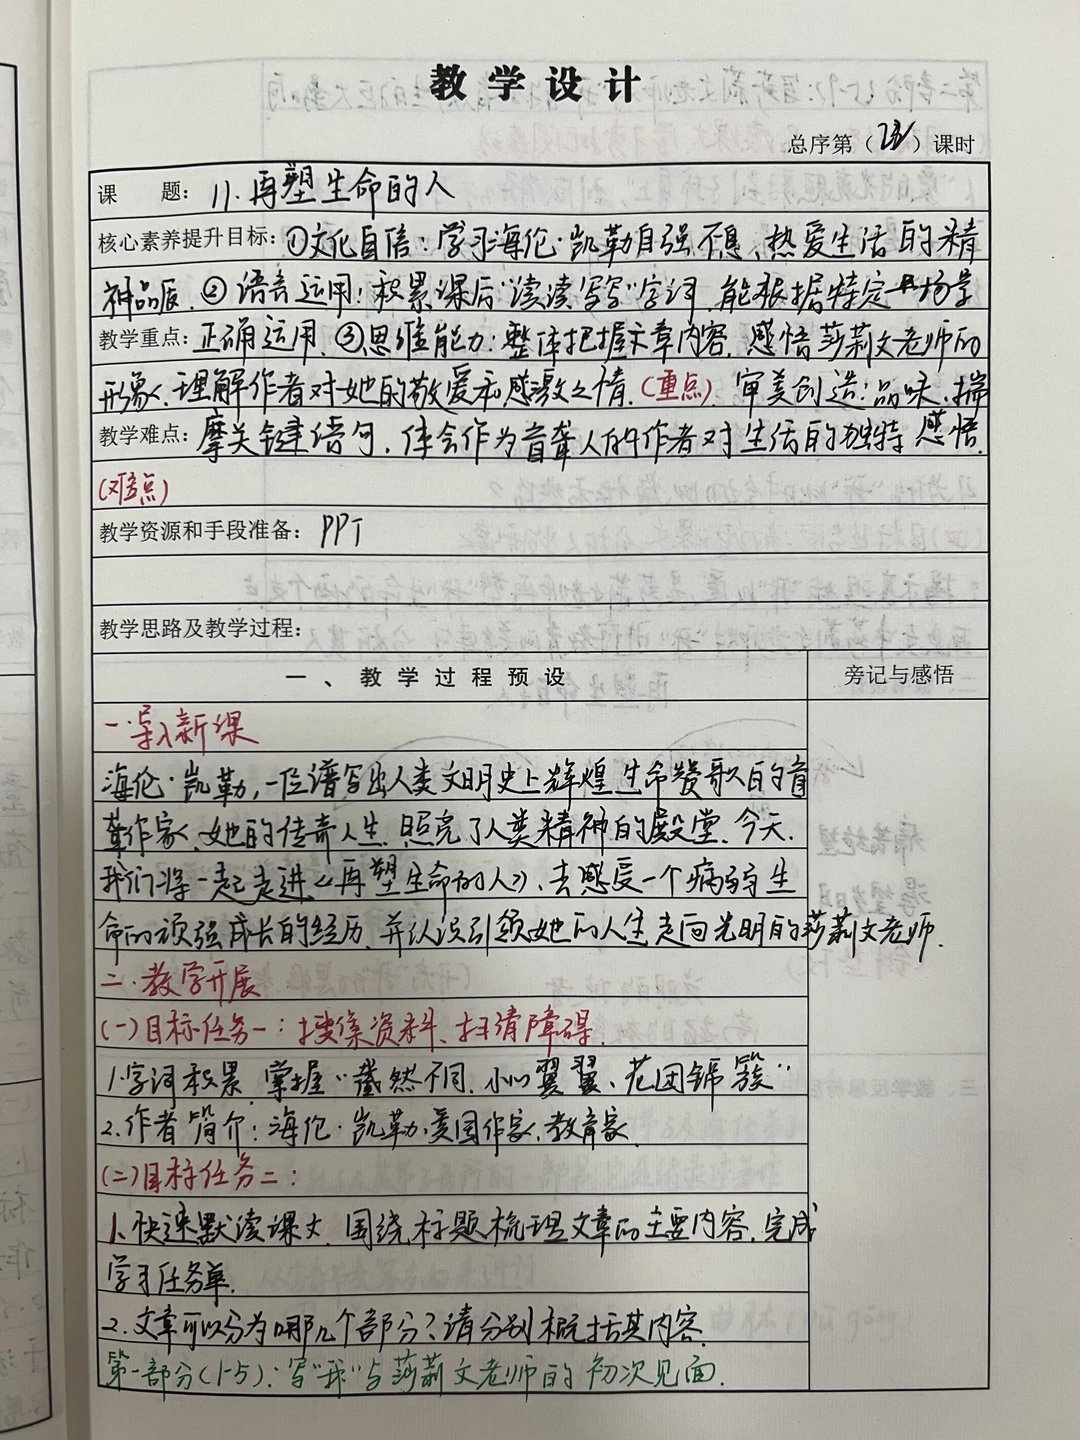 教学设计
总序第（23）课时
课　　题：11.再塑生命的人
核心素养提升目标：①文化自信：学习海伦·凯勒自强不息、热爱生活的精
神品质.②语言运用：积累课后“读读写写”字词.能根据特定场景
教学重点：正确运用.③思维能力：整体把握文章内容.感悟莎莉文老师的
形象.理解作者对她的敬爱和感激之情.(重点).审美创造：品味、揣
教学难点：摩关键语句.体会作为盲聋人的作者对生活的独特感悟.
(难点)
教学资源和手段准备：PPT
教学思路及教学过程：
一、教学过程预设
旁记与感悟
一.导入新课
海伦·凯勒,一位谱写出人类文明史上辉煌生命赞歌的盲
聋作家.她的传奇人生.照亮了人类精神的殿堂.今天.
我们将一起走进《再塑生命的人》、去感受一个病弱生
命的顽强成长的经历.并认识引领她的人生走向光明的莎莉文老师.
二.教学开展
(一)目标任务一：搜集资料、扫清障碍.
1.字词积累.掌握“截然不同.小心翼翼、花团锦簇”
2.作者简介：海伦·凯勒.美国作家.教育家.
(二)目标任务二：
1.快速默读课文.围绕标题梳理文章的主要内容.完成
学习任务单.
2.文章可以分为哪几个部分?请分别概括其内容.
第一部分(1-5)：写“我”与莎莉文老师的初次见面.